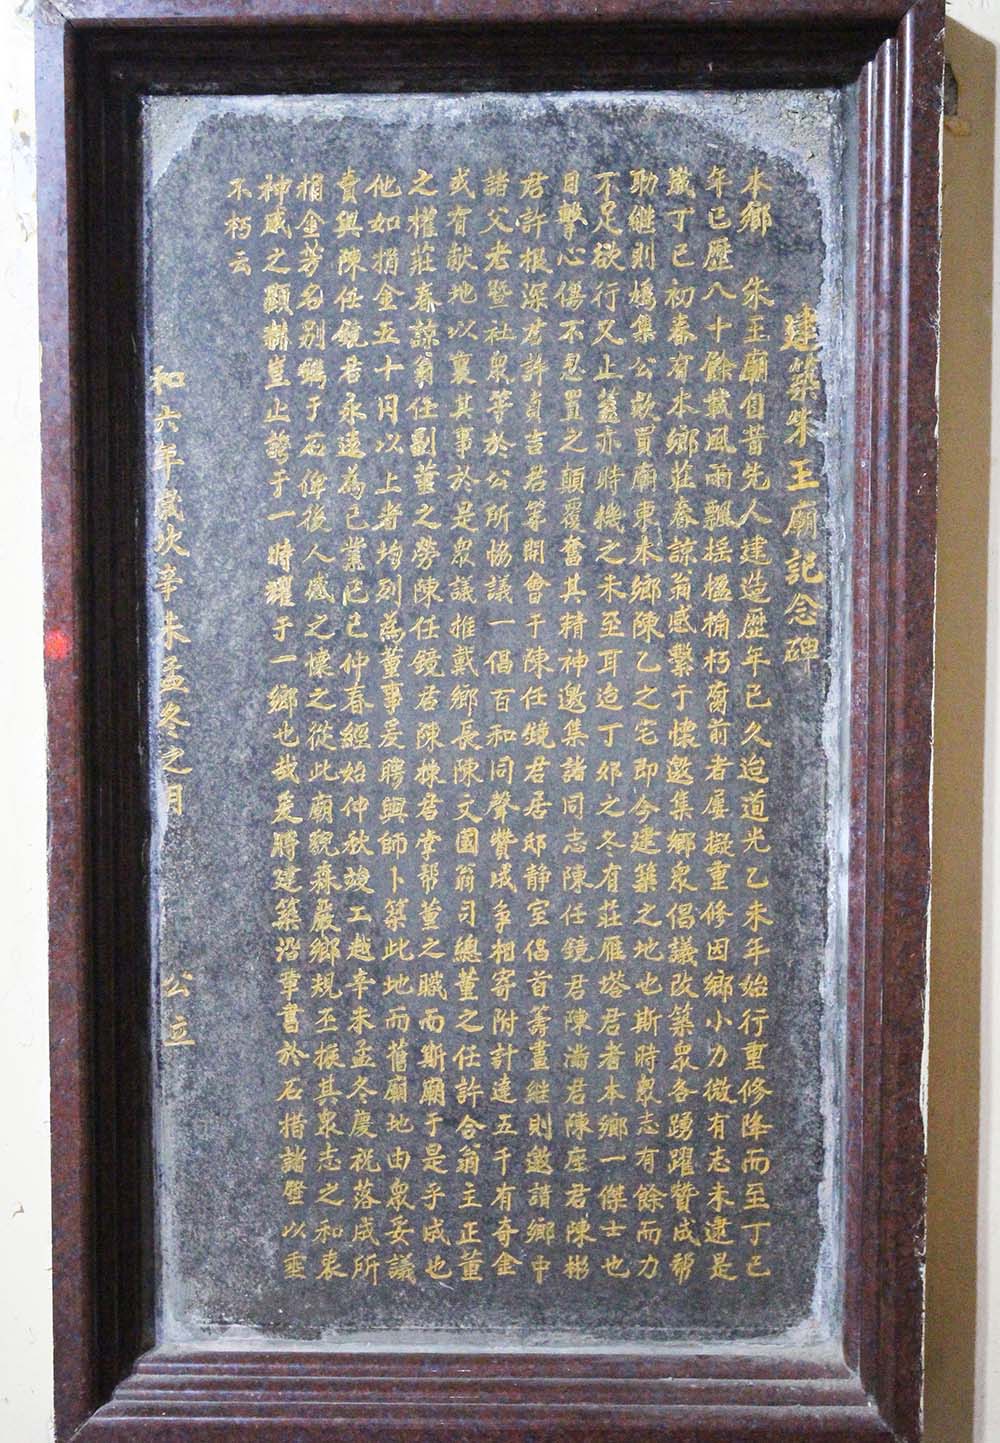 建築朱王廟記念碑
本鄉　朱王廟自昔先人建造歷年已久迨道光乙未年始行重修降而至丁巳
年已歷八十餘載風雨飄搖楹桷朽腐前者屢擬重修因鄉小力微有志未逮是
歲丁巳初春有本鄉莊春諒翁感繫于懷邀集鄉眾倡議改築眾各踴躍贊成幫
助繼則鳩集公款買廟東本鄉陳乙之宅即今建築之地也斯時眾志有餘而力
不足欲行又止蓋亦時機之未至耳迨丁卯之冬有莊雁塔君者本鄉一傑士也
目擊心傷不忍置之顛覆奮其精神邀集諸同志陳任鏡君陳滿君陳座君陳彬
君許根深君許貞吉君等開會于陳任鏡君居邸靜室倡首籌畫繼則邀請鄉中
諸父老暨社眾等於公所協議一倡百和同聲贊成爭相寄附計達五千有奇金
或有献地以襄其事於是眾議推戴鄉長陳文國翁司總董之任許合翁主正董
之權莊春諒翁任副董之勞陳任鏡君陳棟君掌帮董之職而斯廟于是乎成也
他如捐金五十円以上者均列為董事爰聘興師卜築此地而舊廟地由眾妥議
賣與陳任鏡君永遠為己業己巳仲春經始仲秋竣工越辛未孟冬慶祝落成所
捐金芳名别鐫于石俾後人感之懷之從此廟貌森嚴鄉規丕振其眾志之和衷
神威之顯赫豈止誇于一時耀于一鄉也哉爰將建築沿革書於石措諸壁以垂
不朽云
和六年歲次辛未孟冬之月　公立